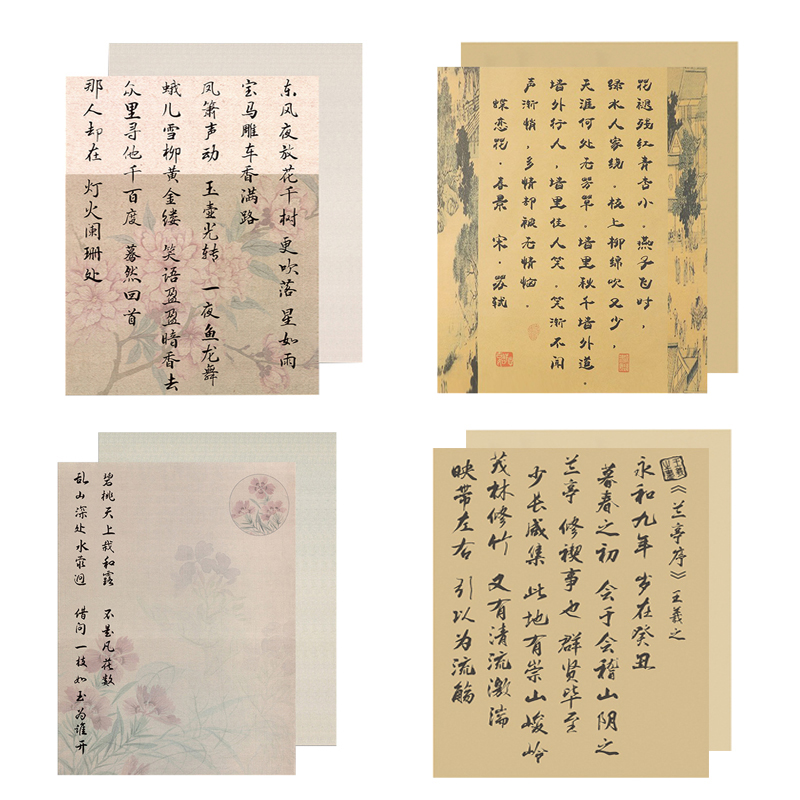 东风夜放花千树 更吹落 星如雨
宝马雕车香满路
凤箫声动 玉壶光转 一夜鱼龙舞
蛾儿雪柳黄金缕 笑语盈盈暗香去
众里寻他千百度 蓦然回首
那人却在 灯火阑珊处
花褪残红青杏小，燕子飞时，
绿水人家绕，枝上柳绵吹又少，
天涯何处无芳草，墙里秋千墙外道，
墙外行人，墙里佳人笑，笑渐不闻
声渐悄，多情却被无情恼，
蝶恋花，春景 宋，苏轼
碧桃天上栽和露 不是凡花数
乱山深处水萦迴 借问一枝如玉为谁开
《兰亭序》王羲之
永和九年 岁在癸丑
暮春之初 会于会稽山阴之
兰亭 修禊事也 群贤毕至
少长咸集 此地有崇山峻岭
茂林修竹 又有清流激湍
映带左右 引以为流觞